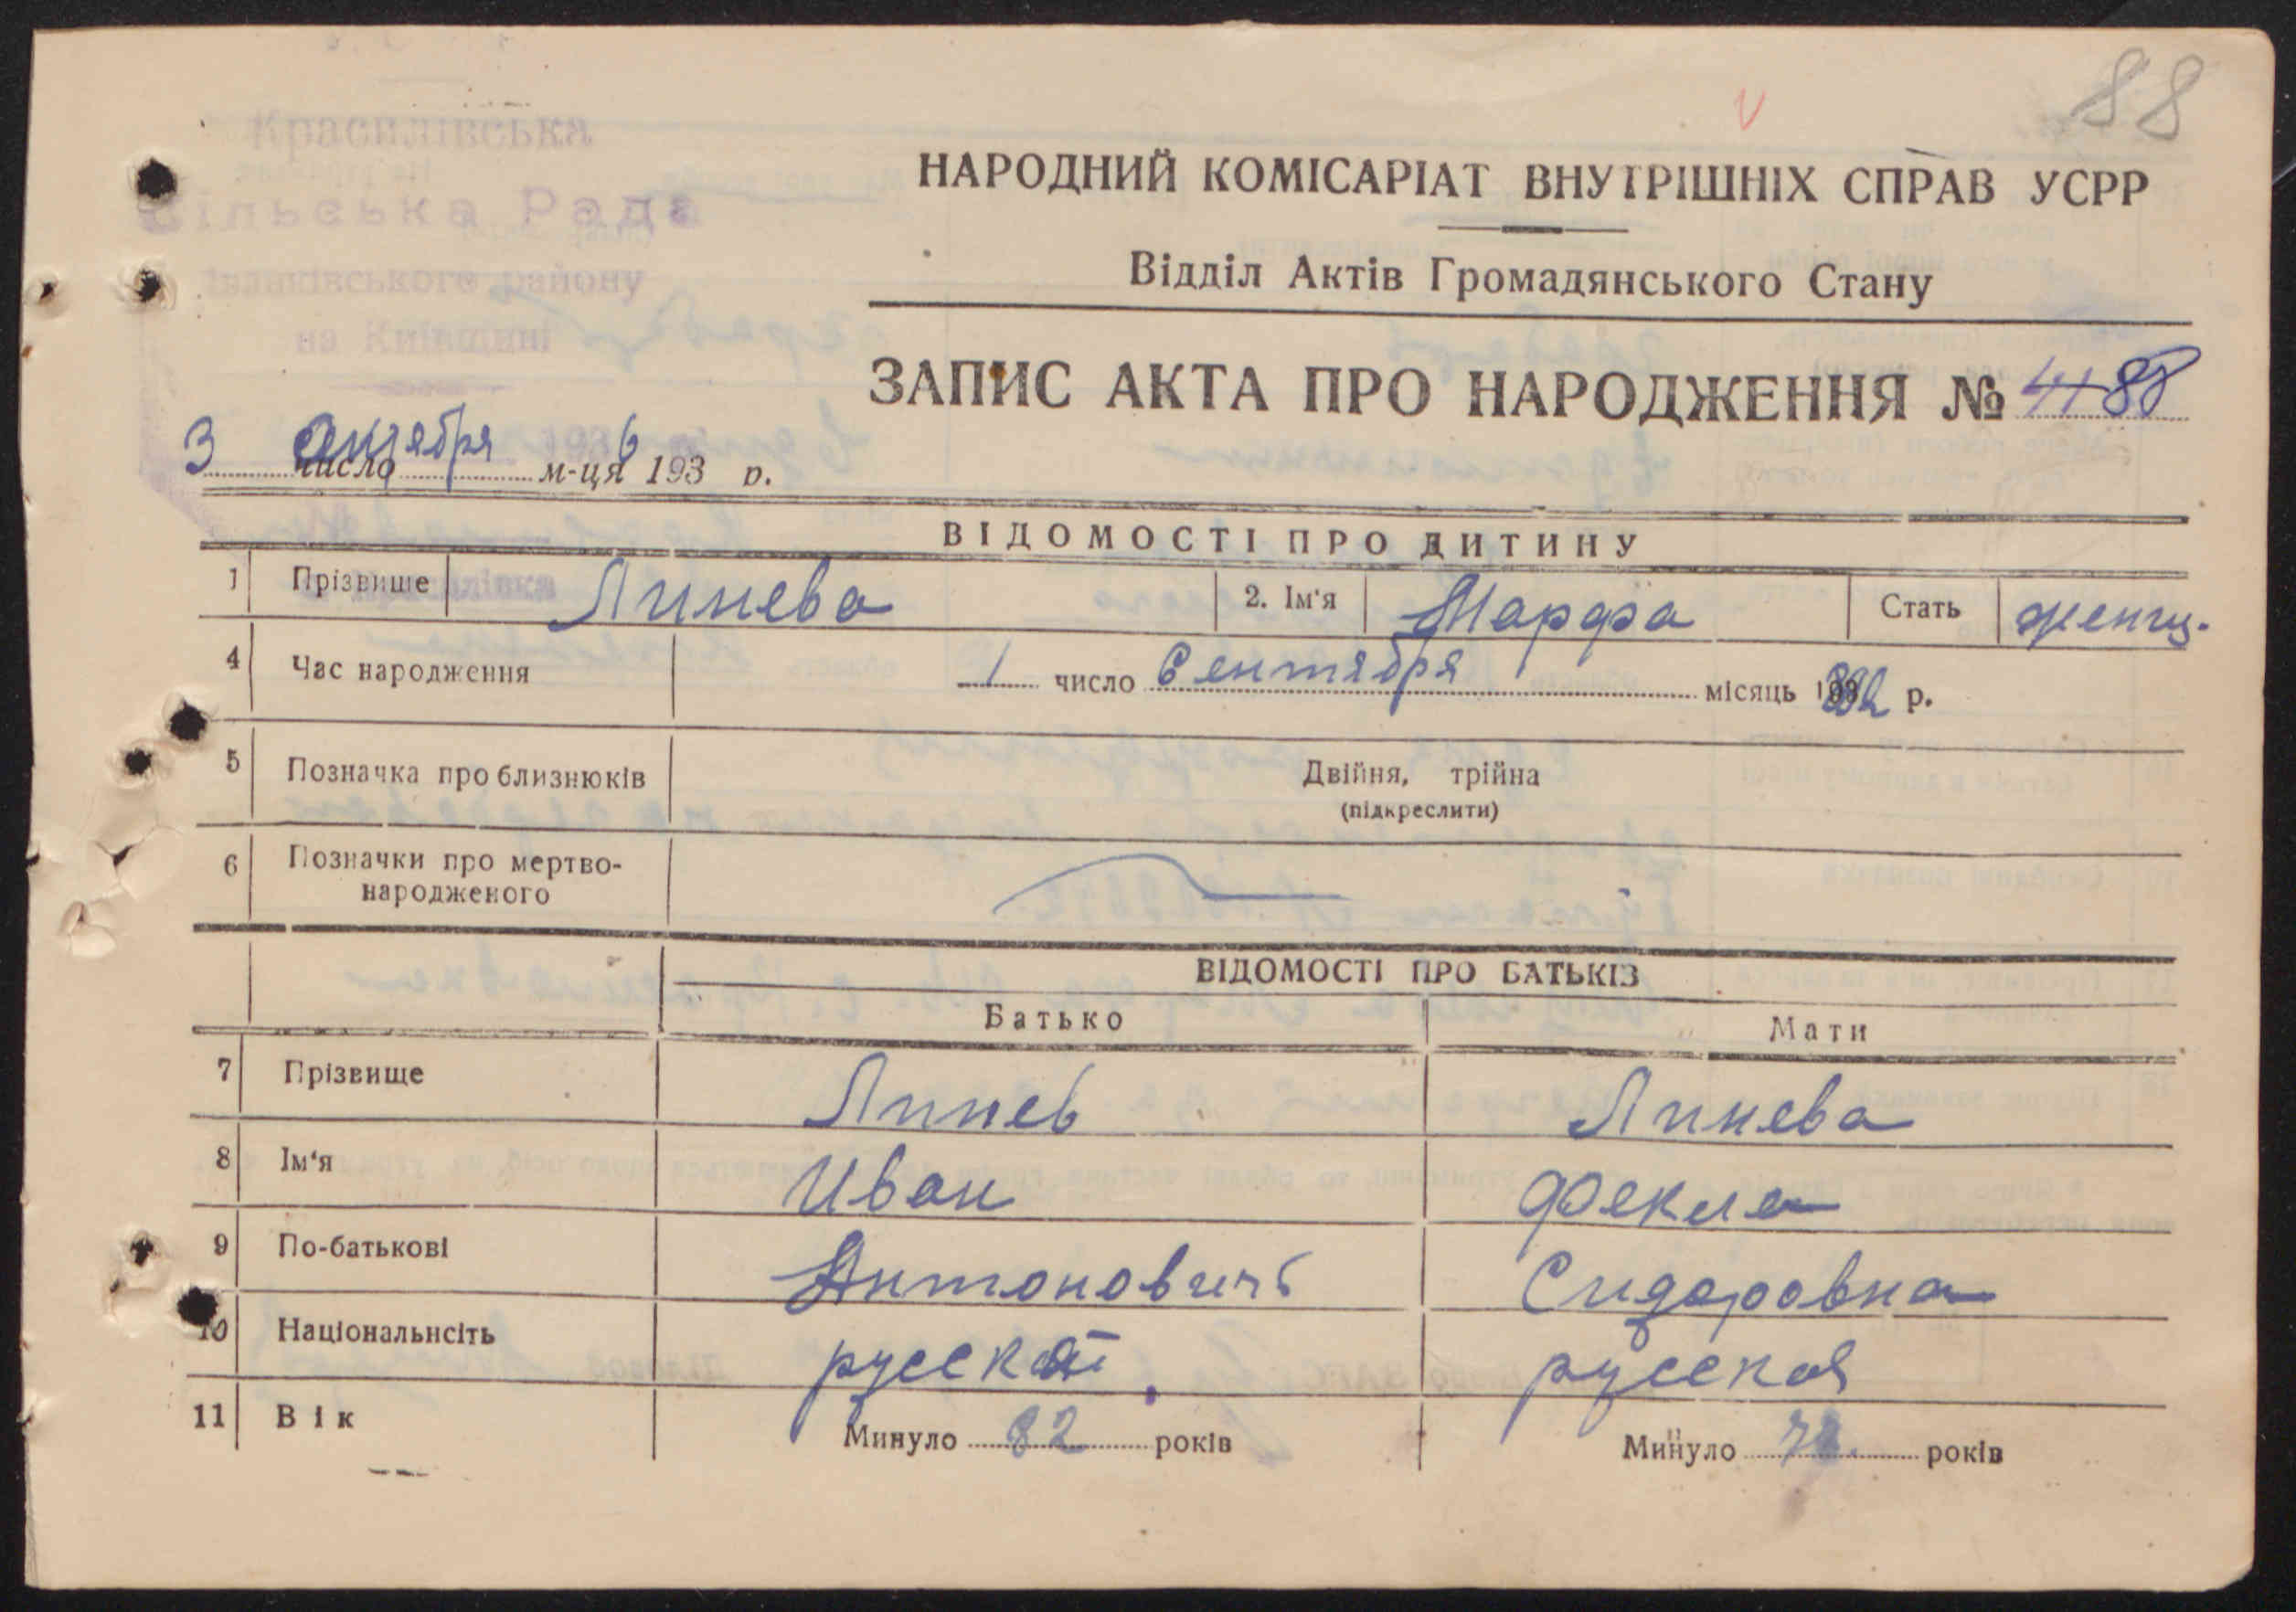 88
Красилівська
Сільська Рада
Іванківського району
на Київщині
НАРОДНИЙ КОМІСАРІАТ ВНУТРІШНІХ СПРАВ УСРР
Відділ Актів Громадянського Стану
ЗАПИС АКТА ПРО НАРОДЖЕННЯ № 88
3 число Октября м-ця 1936 р.
ВІДОМОСТІ ПРО ДИТИНУ
1 Прізвище Линева 2. Ім'я Марфа Стать женщ.
4 Час народження 1 число Сентября місяць р.
5 Позначка про близнюків Двійня, трійна
(підкреслити)
6 Позначки про мертво-
народженого
ВІДОМОСТІ ПРО БАТЬКІВ
Батько Мати
7 Прізвище Линев Линева
8 Ім'я Иван Фекла
9 По-батькові Антонович Сидоровна
10 Національнсіть русский русская
11 Вік Минуло 82 років Минуло років